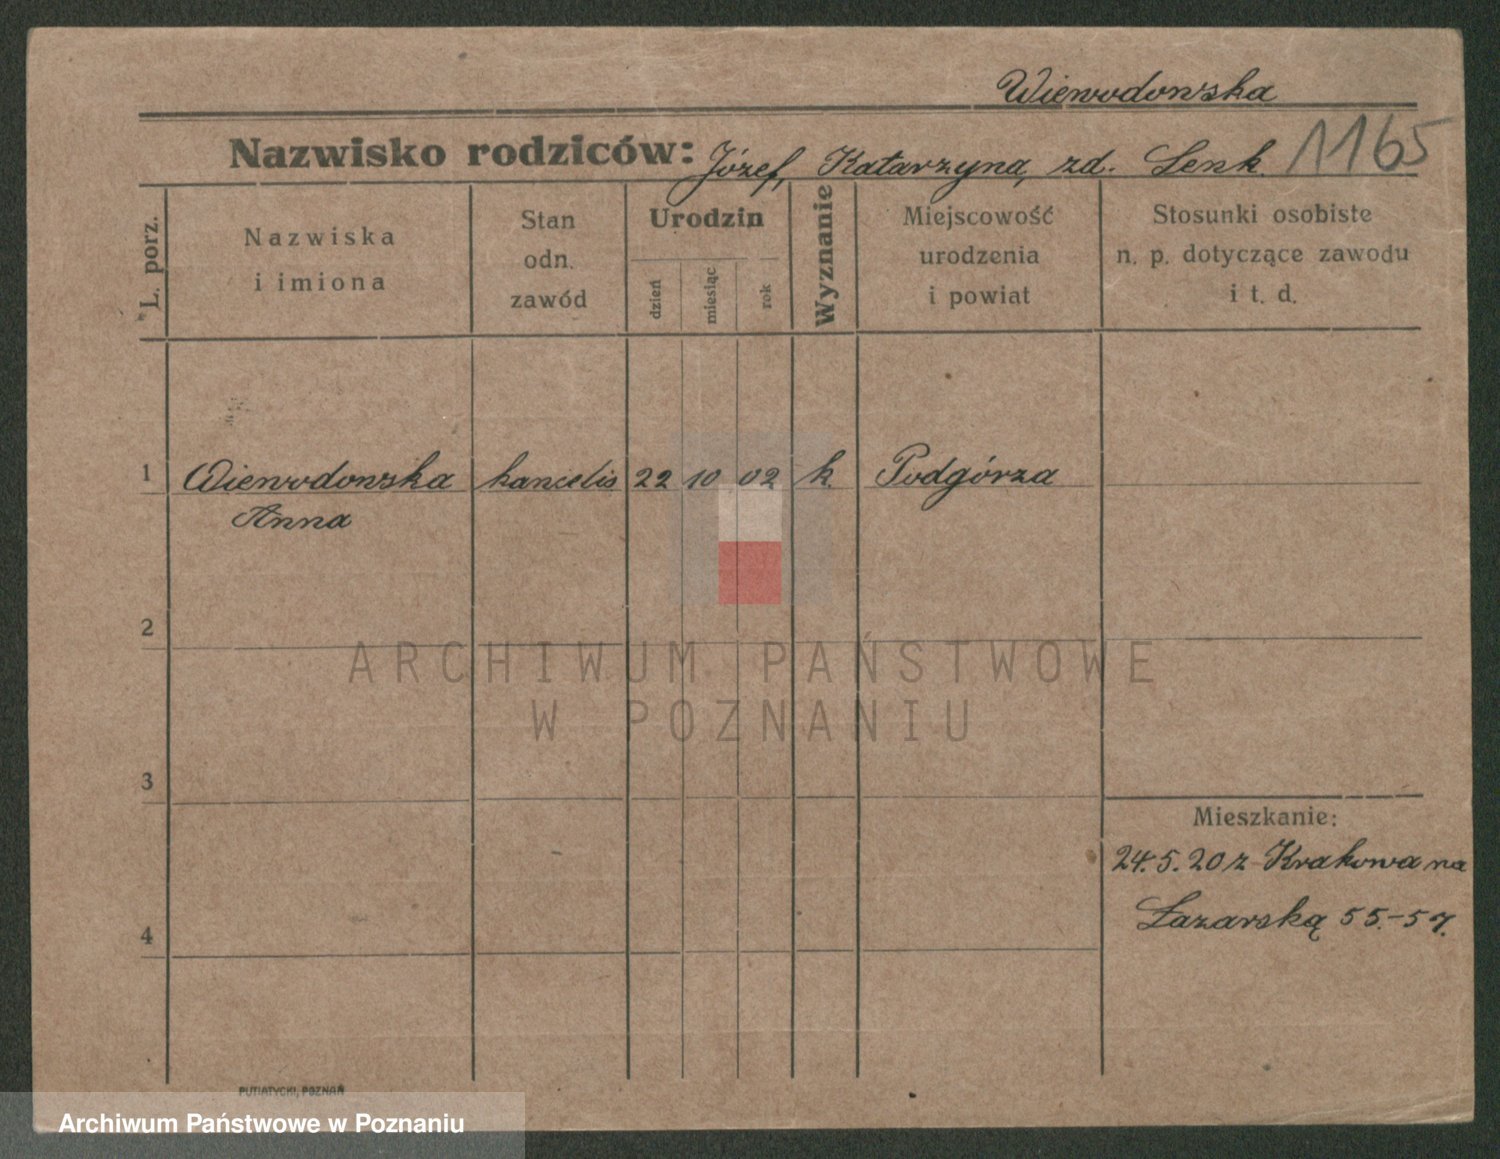 Wiewodowska
Nazwisko rodziców: Józef, Katarzyna, zd. Lenk. 1165
L. porz.
Nazwiska
i imiona
Stan
odn.
zawód
Urodzin
dzień
miesiąc
rok
Wyznanie
Miejscowość
urodzenia
i powiat
Stosunki osobiste
n. p. dotyczące zawodu
i t. d.
1 Wiewodowska kancelis 22 10 02 k. Podgórza
Anna
2
ARCHIWUM PAŃSTWOWE
W POZNANIU
3
Mieszkanie:
24.5.20 z Krakowa na
Łazarską 55.-57.
4
PUTIATYCKI, POZNAŃ
Archiwum Państwowe w Poznaniu